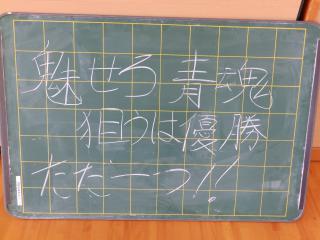 魅せろ 青魂
狙うは優勝
ただ一つ!!